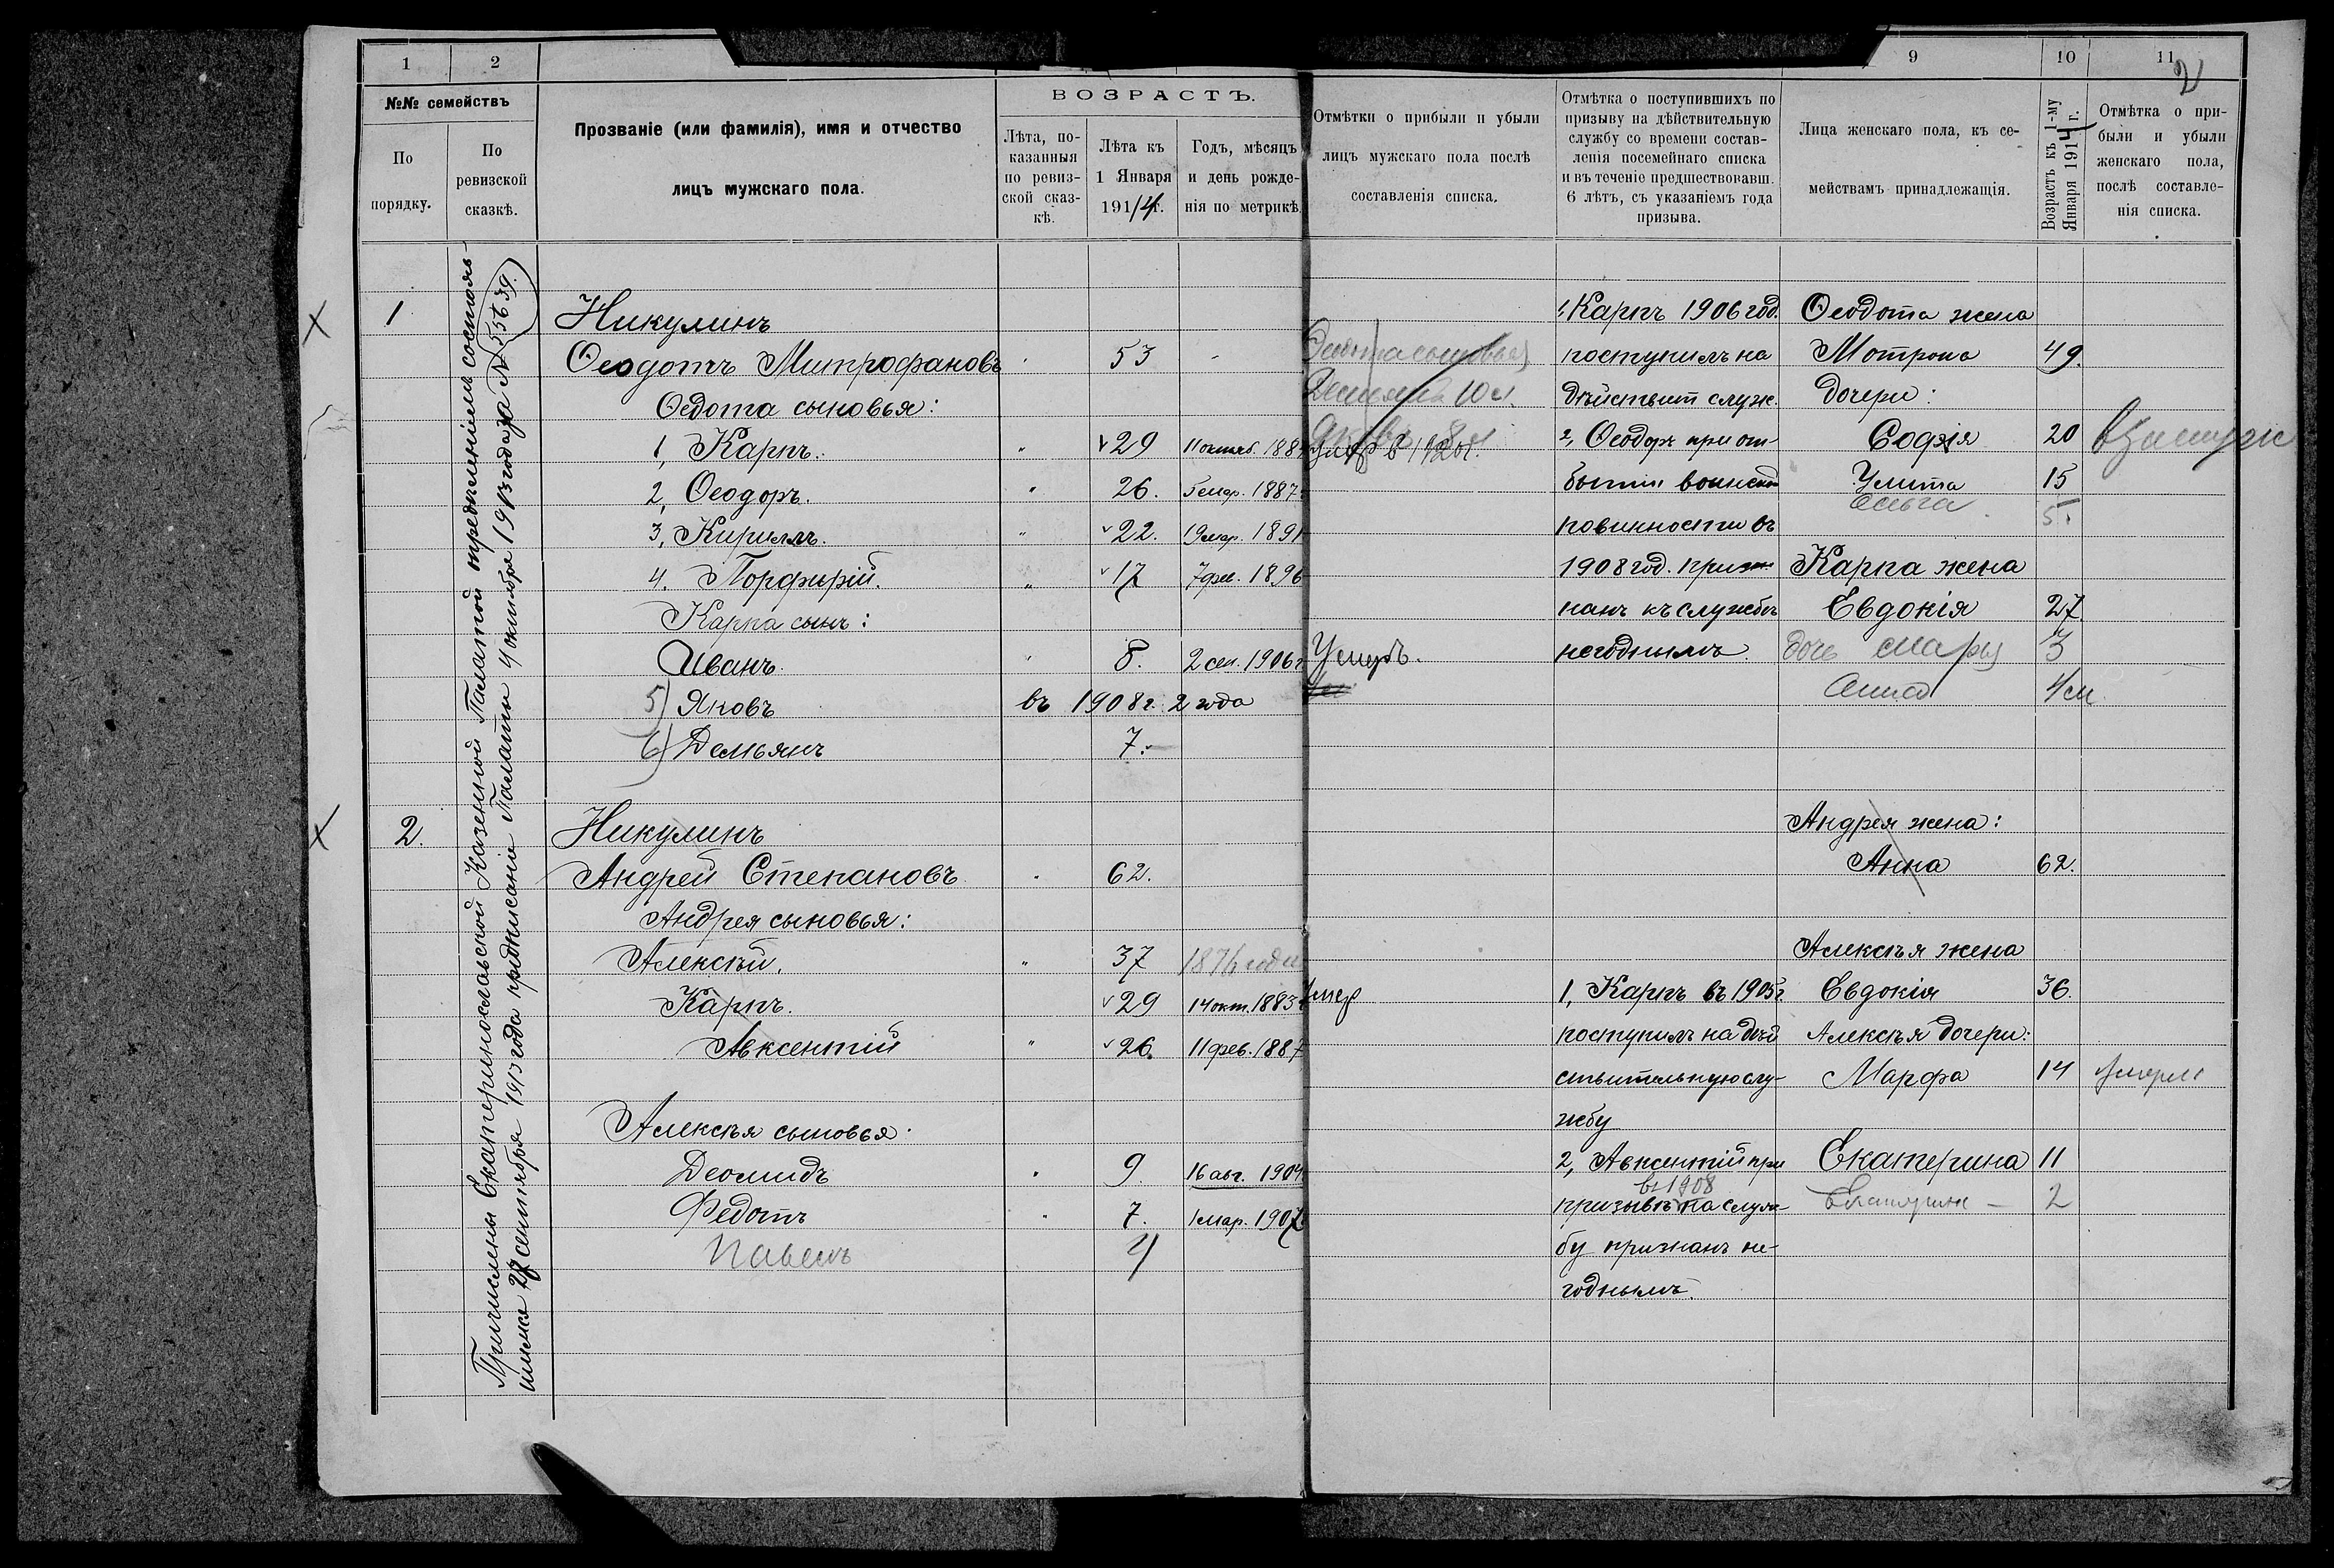 1
2
№№ семействъ
По порядку.
По ревизской сказкѣ.
Прозваніе (или фамилія), имя и отчество
лицъ мужскаго пола.
ВОЗРАСТЪ.
Лѣта, по-
казанныя
по ревиз-
ской сказ-
кѣ.
Лѣта къ
1 Января
1914 г.
Годъ, мѣсяцъ
и день рожде-
нія по метрикѣ
Причислены Екатеринославской Казенной Палатой
27 сентября 1913 года Палаты 4 октября 1913 года за № 55639.
1
Никулинъ
Ѳеодотъ Митрофановъ 53
Ѳедота сыновья:
1, Карпъ. " 29 11 октяб. 188
2, Ѳеодоръ. " 26. 1887
3, Кириллъ. " 22. 1891
4. Порфирій. " 17 7 фев. 1896
Карпа сынъ:
Иванъ. 8. 2 сен. 1906 г
5) Яковъ въ 1908 г. 2 года
6) Демьянъ 7.
2.
Никулинъ
Андрей Степановъ 62.
Андрея сыновья:
Алексѣй. " 37 1876 года
Карпъ. 29 14 окт. 1883
Авксентій " 26. 11 фев. 1887
Алексѣя сыновья
Деомидъ 9. 16 авг. 1904
Федотъ 7. 1 мар. 1907
Павелъ 4
9
10
11
2
Отмѣтки о прибыли и убыли
лицъ мужскаго пола послѣ
составленія списка.
Отмѣтка о поступившихъ по
призыву на дѣйствительную
службу со времени состав-
ленія посемейнаго списка
и въ теченіе предшествовавш.
6 лѣтъ, съ указаніемъ года
призыва.
Лица женскаго пола, къ се-
мействамъ принадлежащія.
Возрастъ къ 1-му
Января 1914 г.
Отмѣтка о при-
были и убыли
женскаго пола,
послѣ составле-
нія списка.
сыновья
10 л.
Яковъ 8 л
Умеръ.
умер
1, Карпъ 1906 год.
поступилъ на
дѣйствит служ.
2, Ѳеодоръ при от-
бытіи воинской
повинности въ
1908 год. приз-
нанъ къ службѣ
негоднымъ.
1, Карпъ въ 1905 г
поступилъ на дѣй
ствительную слу-
жбу
2, Авксентій при
въ 1908
призывѣ на служ-
бу признанъ не-
годнымъ.
Ѳеодота жена
Мотрона 49.
дочери:
Софія 20 взамуже
Улита 15
Ольга 5.
Карпа жена
Евдокія 27
дочь Марья 3
Анна 4 м
Андрея жена:
Анна 62.
Алексѣя жена
Евдокія 36.
Алексѣя дочери:
Марфа 14 умерла
Екатерина 11
2